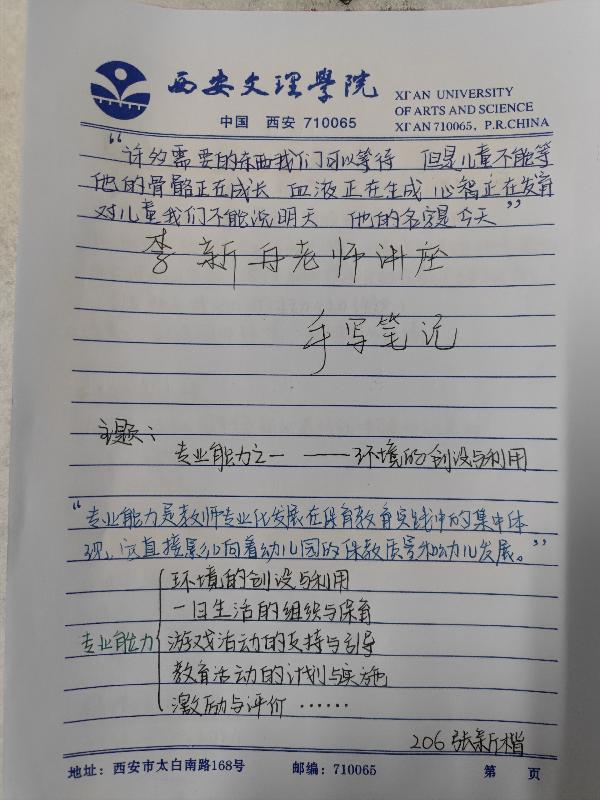 西安文理學院
中国 西安 710065
XI'AN UNIVERSITY
OF ARTS AND SCIENCE
XI'AN 710065, P.R.CHINA
“许多需要的东西我们可以等待 但是儿童不能等
他的骨骼正在成长 血液正在生成 心智正在发育
对儿童我们不能说明天 他的名字是今天”
李新舟老师讲座
手写笔记
主题：
专业能力之一 ——环境的创设与利用
“专业能力是教师专业化发展在保育教育实践中的集中体
现，它直接影响着幼儿园的保教质量和幼儿发展。”
环境的创设与利用
一日生活的组织与保育
专业能力 游戏活动的支持与引导
教育活动的计划与实施
激励与评价 ……
206 张新楷
地址：西安市太白南路168号 邮编：710065 第 页